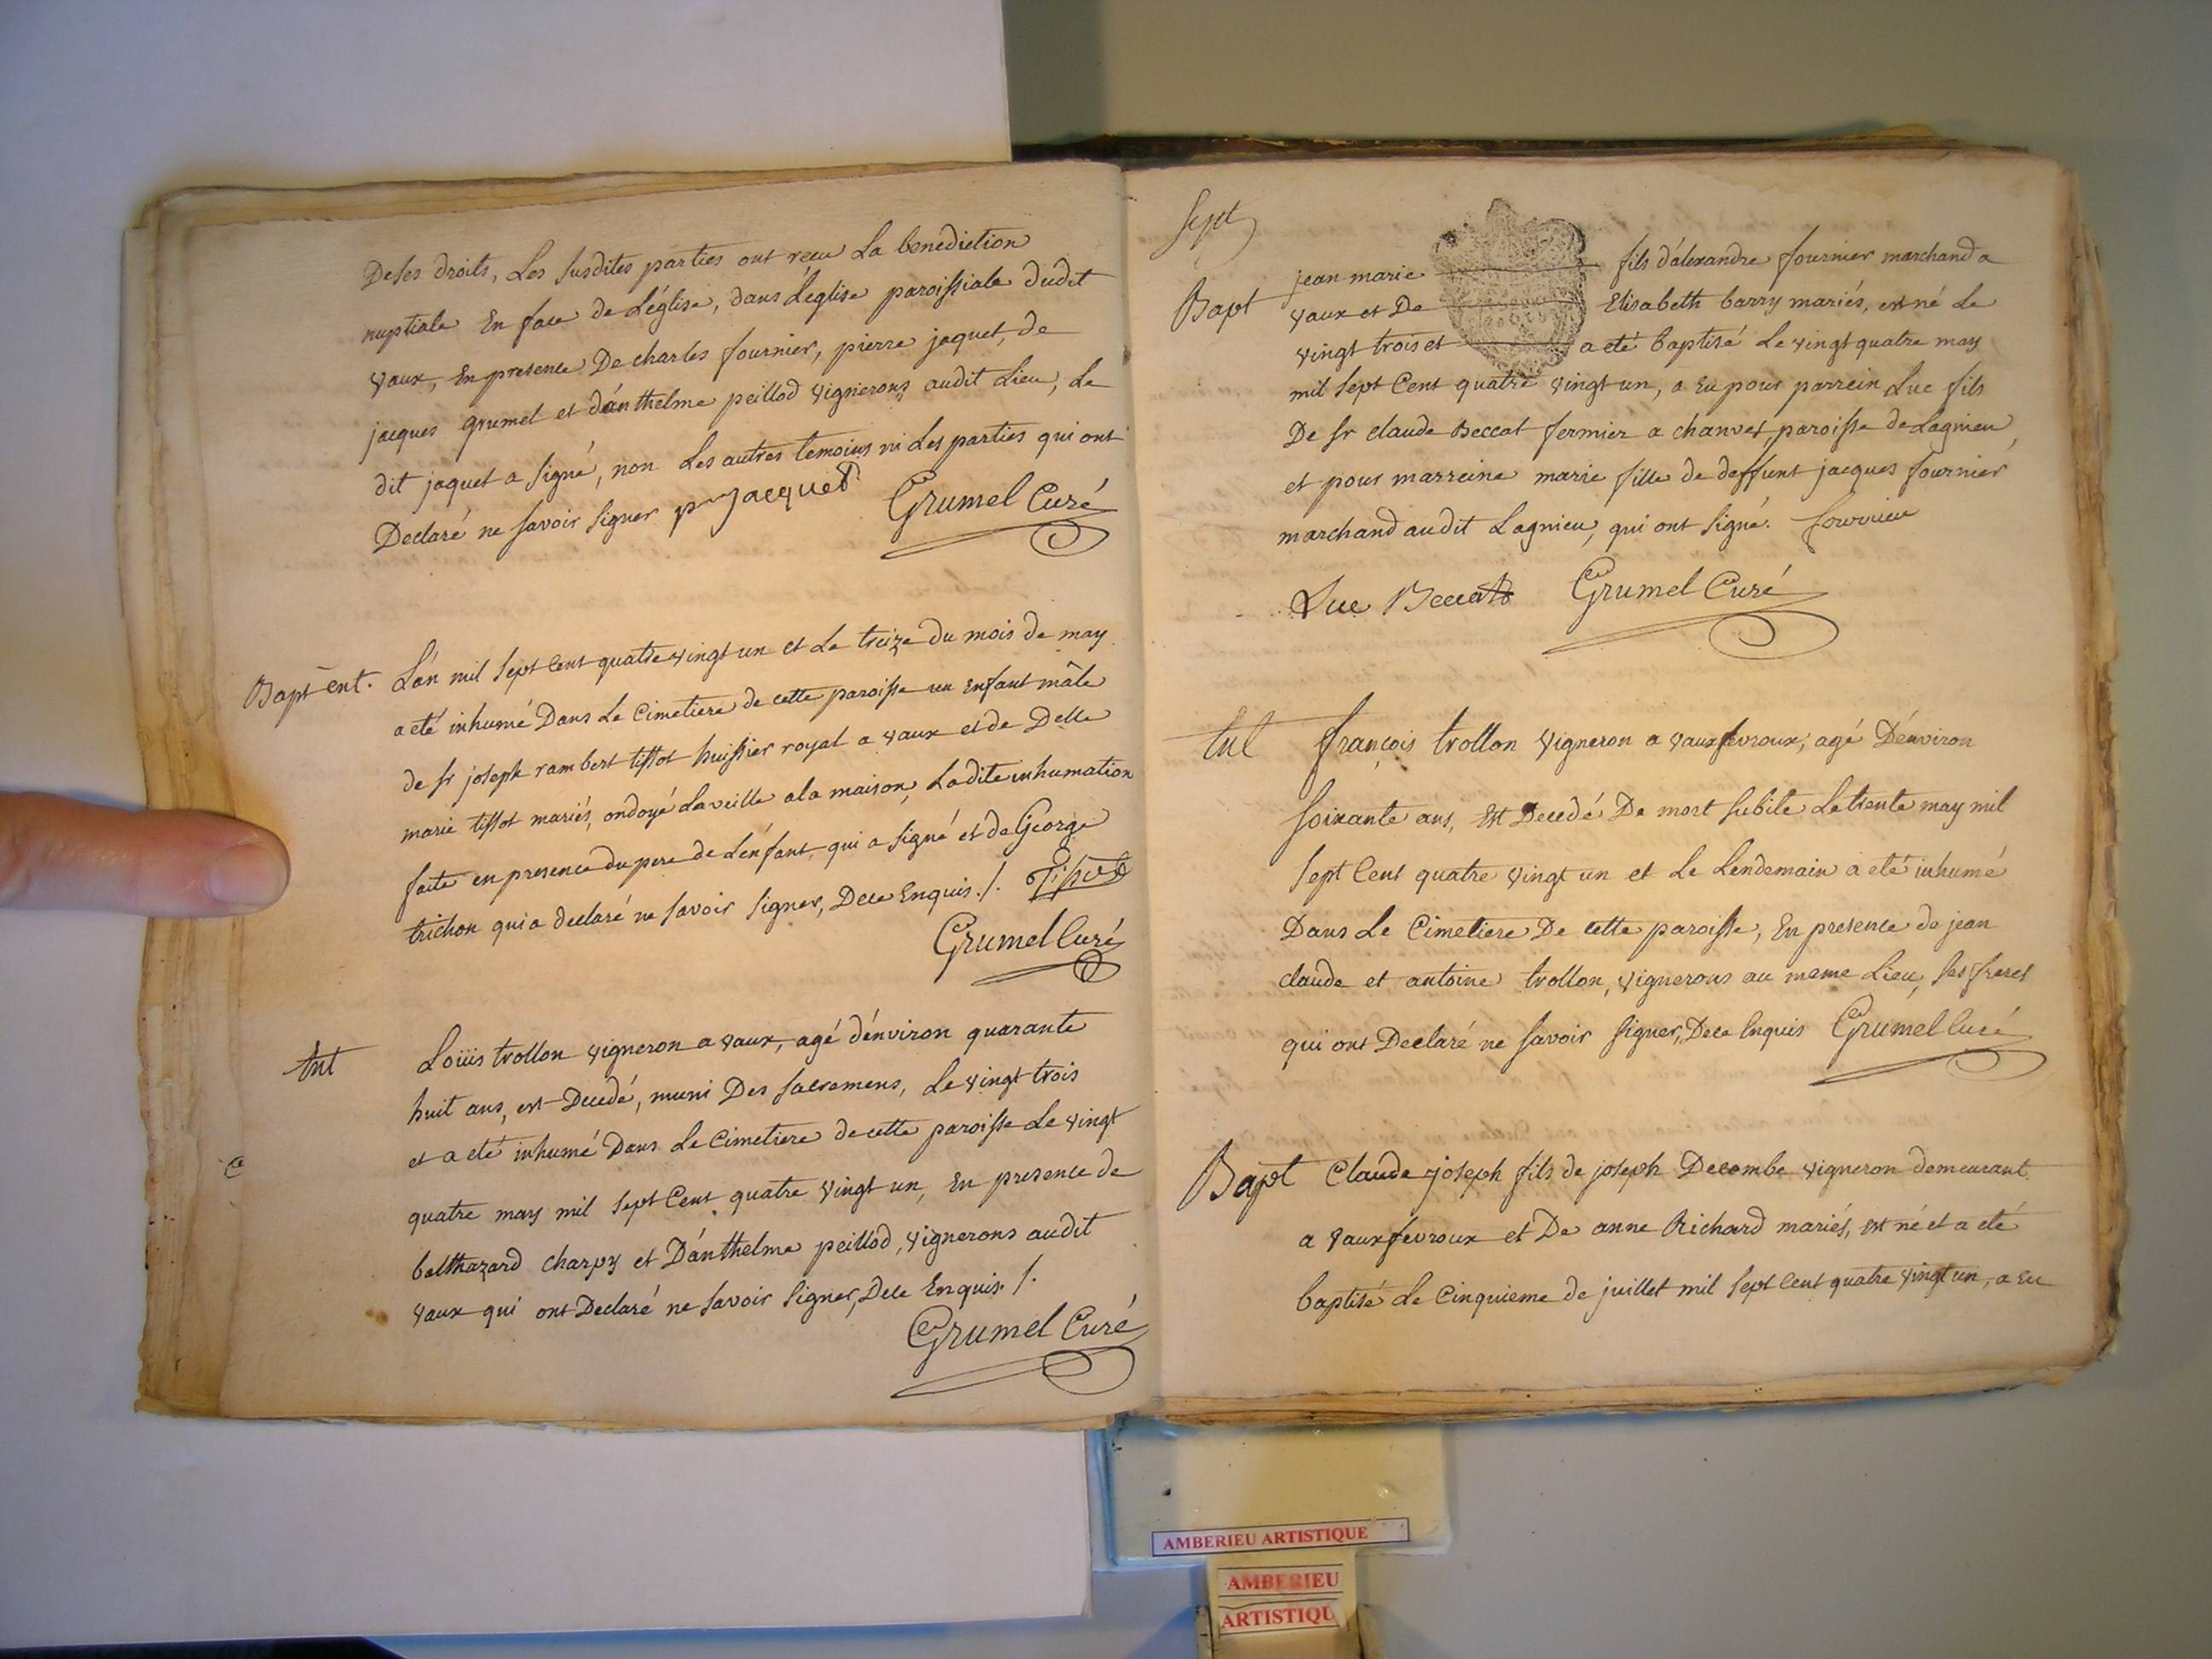 De ses droits, Les susdites parties ont reçu La benediction
nuptiale En face de L'église, dans L'église paroissiale dudit
vaux, En presence De charles fournier, pierre jaquet, de
jacques grumel et d'anthelme peillod vignerons audit Lieu, Le
dit jaquet a signé, non Les autres temoins ni Les parties qui ont
Declaré ne savoir signer pre Jacquet Grumel Curé
Bapt ent. L'an mil sept Cent quatre vingt un et Le treize du mois de may
a eté inhumé Dans Le Cimetiere de cette paroisse un Enfant mâle
de sr joseph rambert tissot huissier royal a vaux et de Delle
marie tissot mariés, ondoyé La veille a la maison, Ladite inhumation
faite en presence du pere de L'enfant, qui a signé et de George
trichon qui a declaré ne savoir signer, Dece Enquis ./. Tissot
Grumel Curé
Ent Loüis trollon vigneron a vaux, agé d'environ quarante
huit ans, est Decedé, muni Des sacremens, Le vingt trois
et a eté inhumé Dans Le Cimetiere de cette paroisse Le vingt
quatre may mil sept Cent quatre vingt un, En presence de
balthazard charpy et D'anthelme peillod, vignerons audit
vaux qui ont Declaré ne savoir signer, Dece Enquis ./.
Grumel Curé
Sept
Bapt jean marie fils d'alexandre fournier marchand a
vaux et De Elisabeth barry mariés, est né Le
vingt trois et a eté baptisé Le vingt quatre may
mil sept Cent quatre vingt un, a Eu pour parrein Luc fils
De sr claude Beccat fermier a chanves, paroisse de Lagnieu,
et pour marreine marie fille de deffunt jacques fournier
marchand audit Lagnieu, qui ont signé. fournier
Luc Beccat Grumel Curé
Ent françois trollon vigneron a vauxfevroux, agé D'environ
soixante ans, Est Decedé De mort subite Le trente may mil
sept Cent quatre vingt un et Le Lendemain a eté inhumé
Dans Le Cimetiere De cette paroisse, En presence de jean
claude et antoine trollon, vignerons au meme Lieu, ses freres
qui ont Declaré ne savoir signer, Dece Enquis Grumel Curé
Bapt Claude joseph fils de joseph Decombe vigneron demeurant
a vauxfevroux et De anne Richard mariés, est né et a eté
baptisé Le Cinquieme de juillet mil sept Cent quatre vingt un, a Eu
AMBERIEU ARTISTIQUE
AMBERIEU
ARTISTIQU